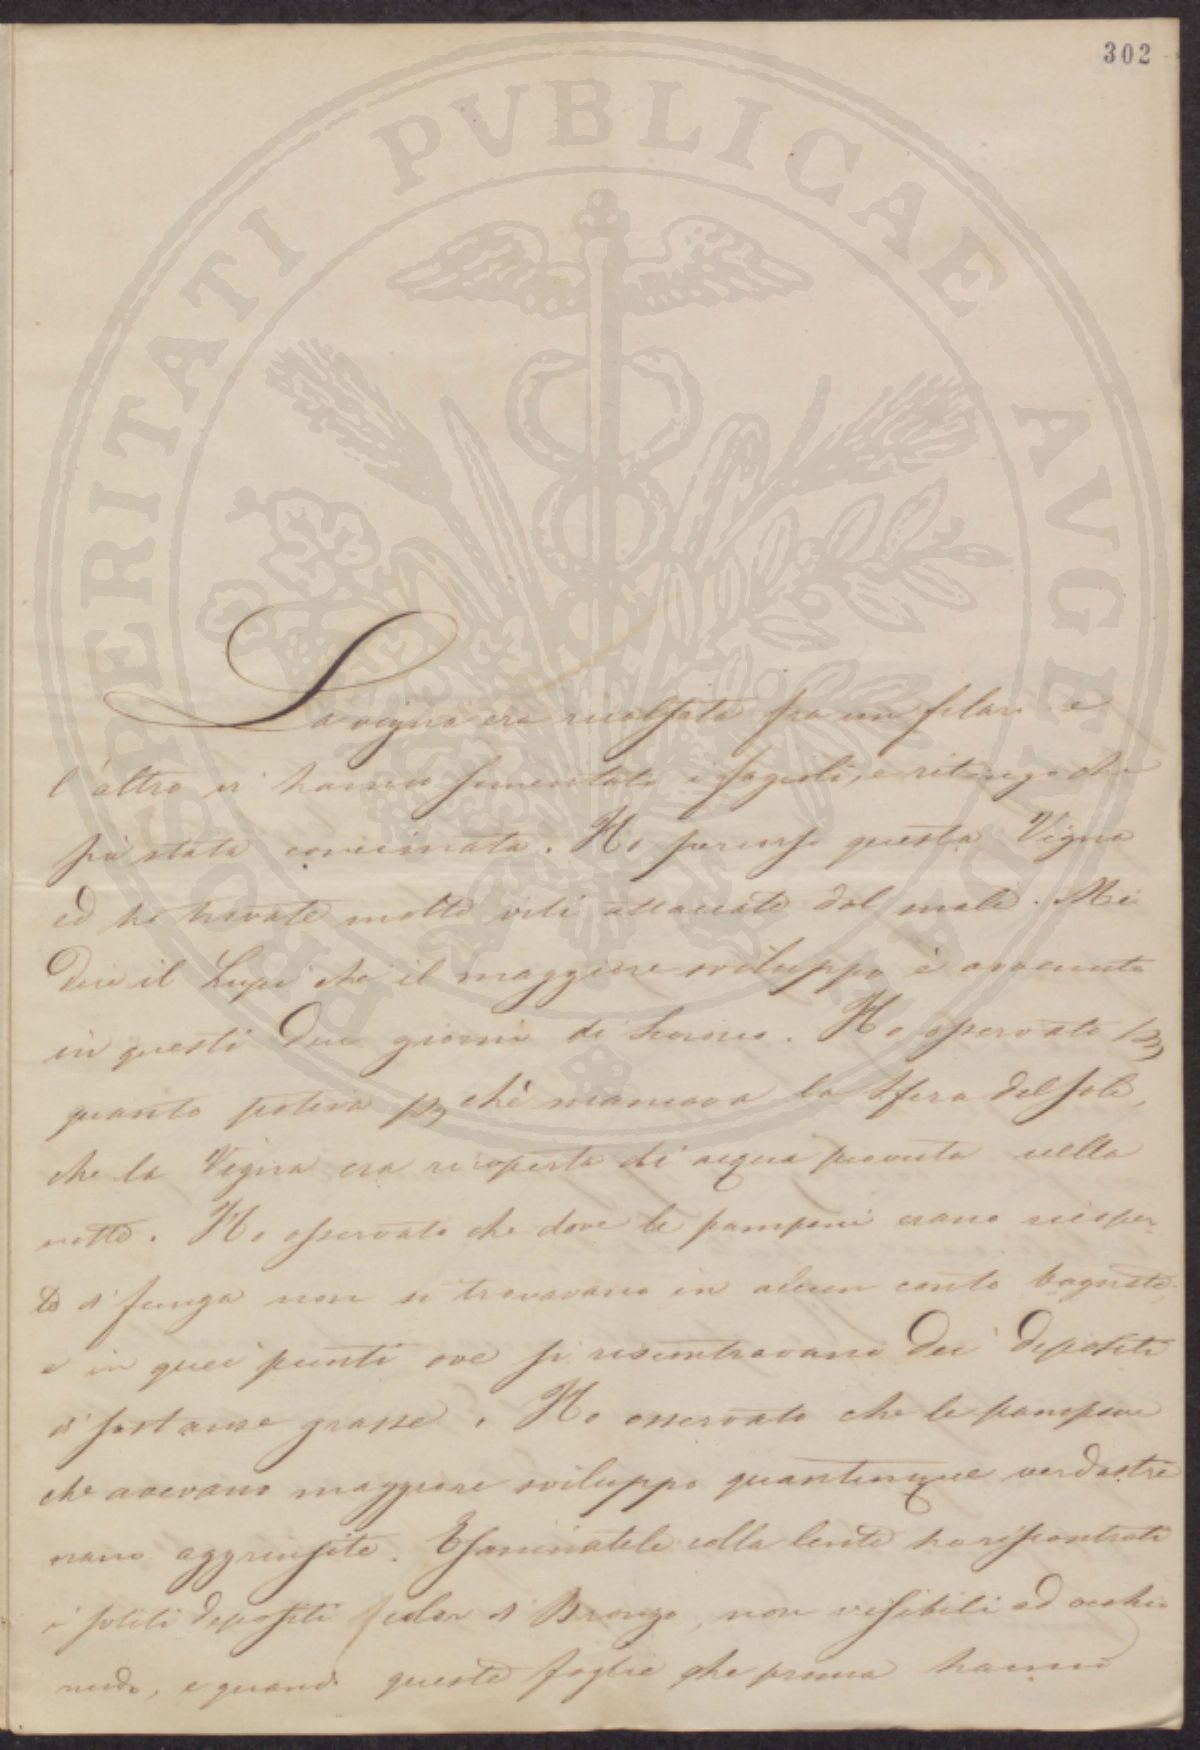 302
PROSPERITATI PVBLICAE AVGENDAE
La vigna era rivoltata fra un filare e
l'altro vi hanno sementato i fagioli, e ritengo che
sia stata concimata. Ho percorso questa Vigna
ed ho trovate molte viti attaccate dal male. Mi
dice il Lupi che il maggiore sviluppo è avvenuto
in questi due giorni di Scirocco. Ho osservato per
quanto poteva perchè mancava la sfera del sole,
che la Vigna era ricoperta di acqua piovuta nella
notte. Ho osservato che dove le pampane erano ricoper-
te di funga non si trovavano in alcun conto bagnate,
e in quei punti ove si riscontravano dei depositi
di sostanze grasse. Ho osservato che le pampane
che avevano maggiore sviluppo quantunque verdastre
erano aggrinzite. Esaminatele colla lente ho riscontrati
i soliti depositi color di Bronzo, non visibili ad occhio
nudo, e quando queste foglie che prima hanno